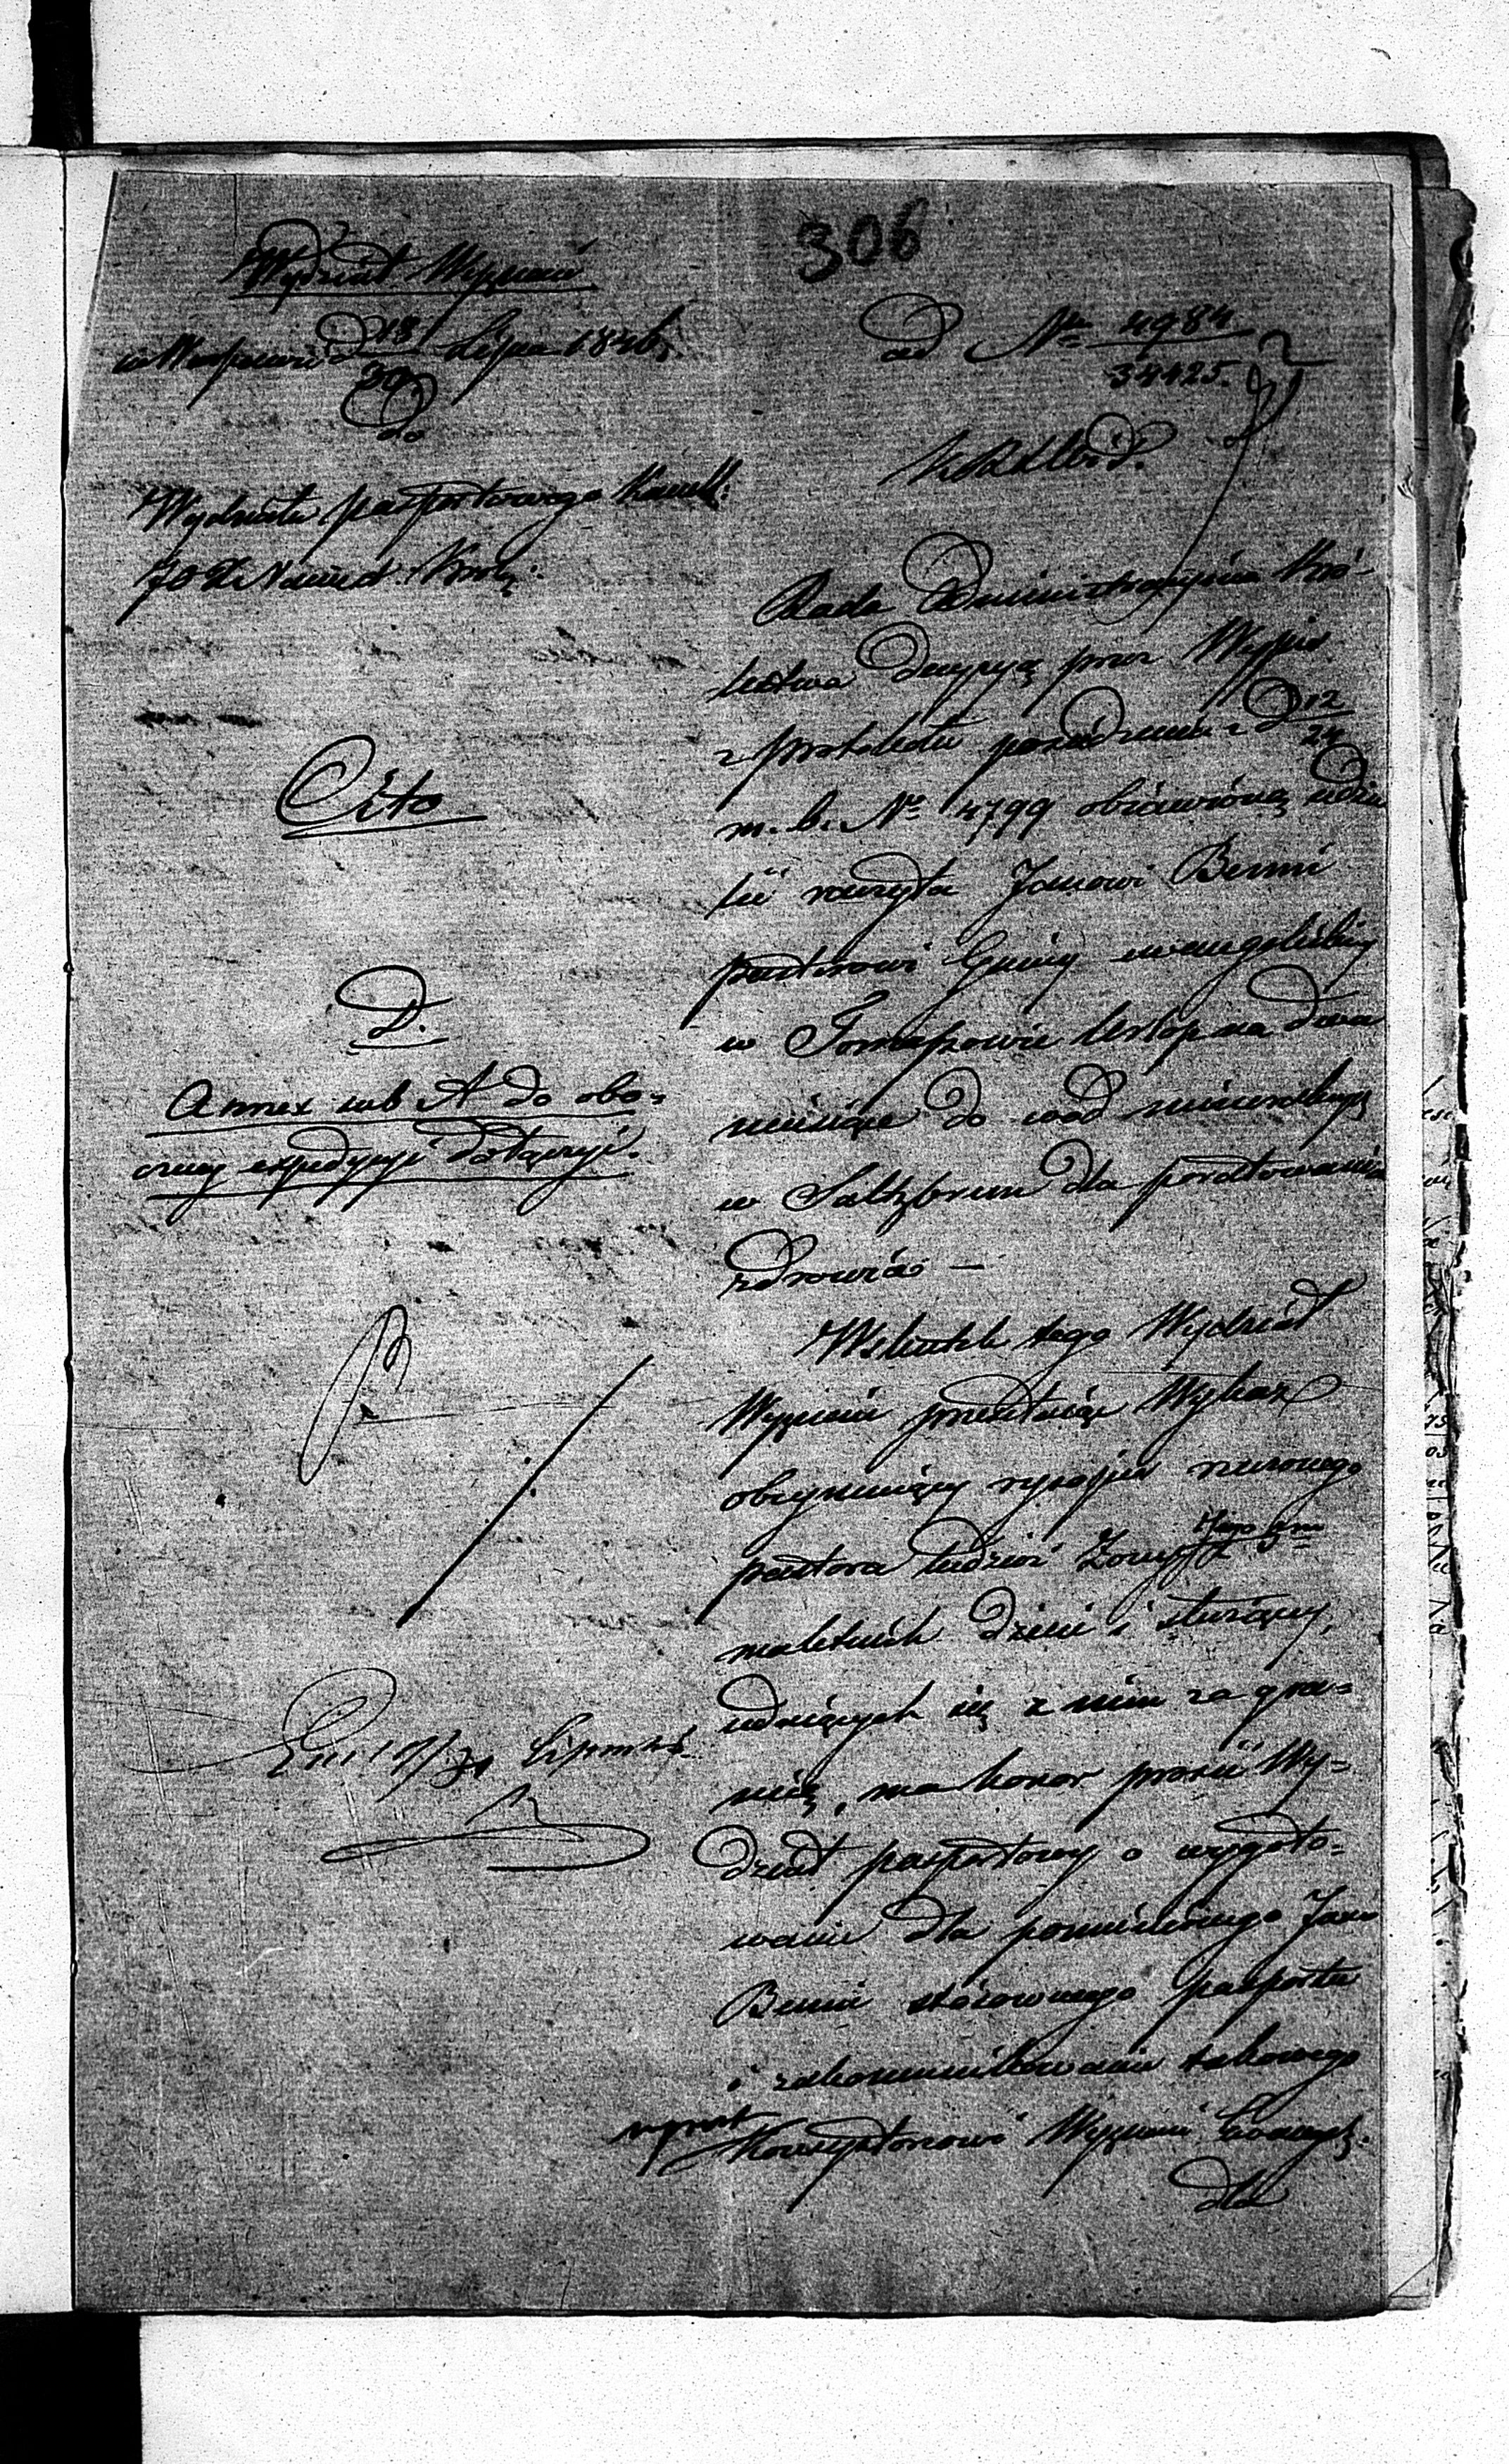 306
Wydział Wyznań
w Warszawie d 18/30 Lipca 1846 r.
do
Wydziału paszportowego Kancell:
JO X Namiest: Król:
Cito
D.
Annex sub A do obo-
czney expedycyi dołączyć.
ad Nr 4984/34425.
Rada Administracyjna Kró-
lestwa decyzyą przez Wypis
z protokółu posiedzenia z d 12/24
m. b. Nr 4799 objawioną udzie
lić raczyła Janowi Benni
pastorowi Gminy ewangelickiej
w Tomaszowie Urlop na dwa
miesiące do wód mineralnych
w Saltzbrun dla poratowania
zdrowia –
Wskutek tego Wydział
Wyznań przesyłając Wykaz
obejmujący rysopis rzeczonego
pastora tudzież Żony Jego
małoletnich dzieci i służącej,
udających się z nim za gra-
nicę, ma honor prosić Wy-
dział paszportowy o wygoto-
wanie dla pomienionego Jana
Benni stósownego paszportu
i zakomunikowanie takowego
wprost Konsystorzowi Wyznań Ewang:
dla
Ex: 19/31 Lipca